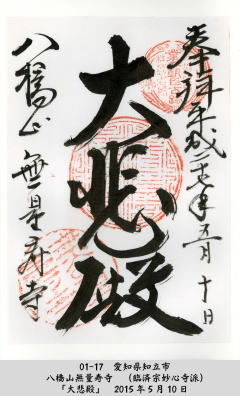 奉拝 平成二十七年五月十日
大悲殿
八橋山 無量寿寺
01-17　愛知県知立市
八橋山無量寿寺　（臨済宗妙心寺派）
「大悲殿」　2015年5月10日